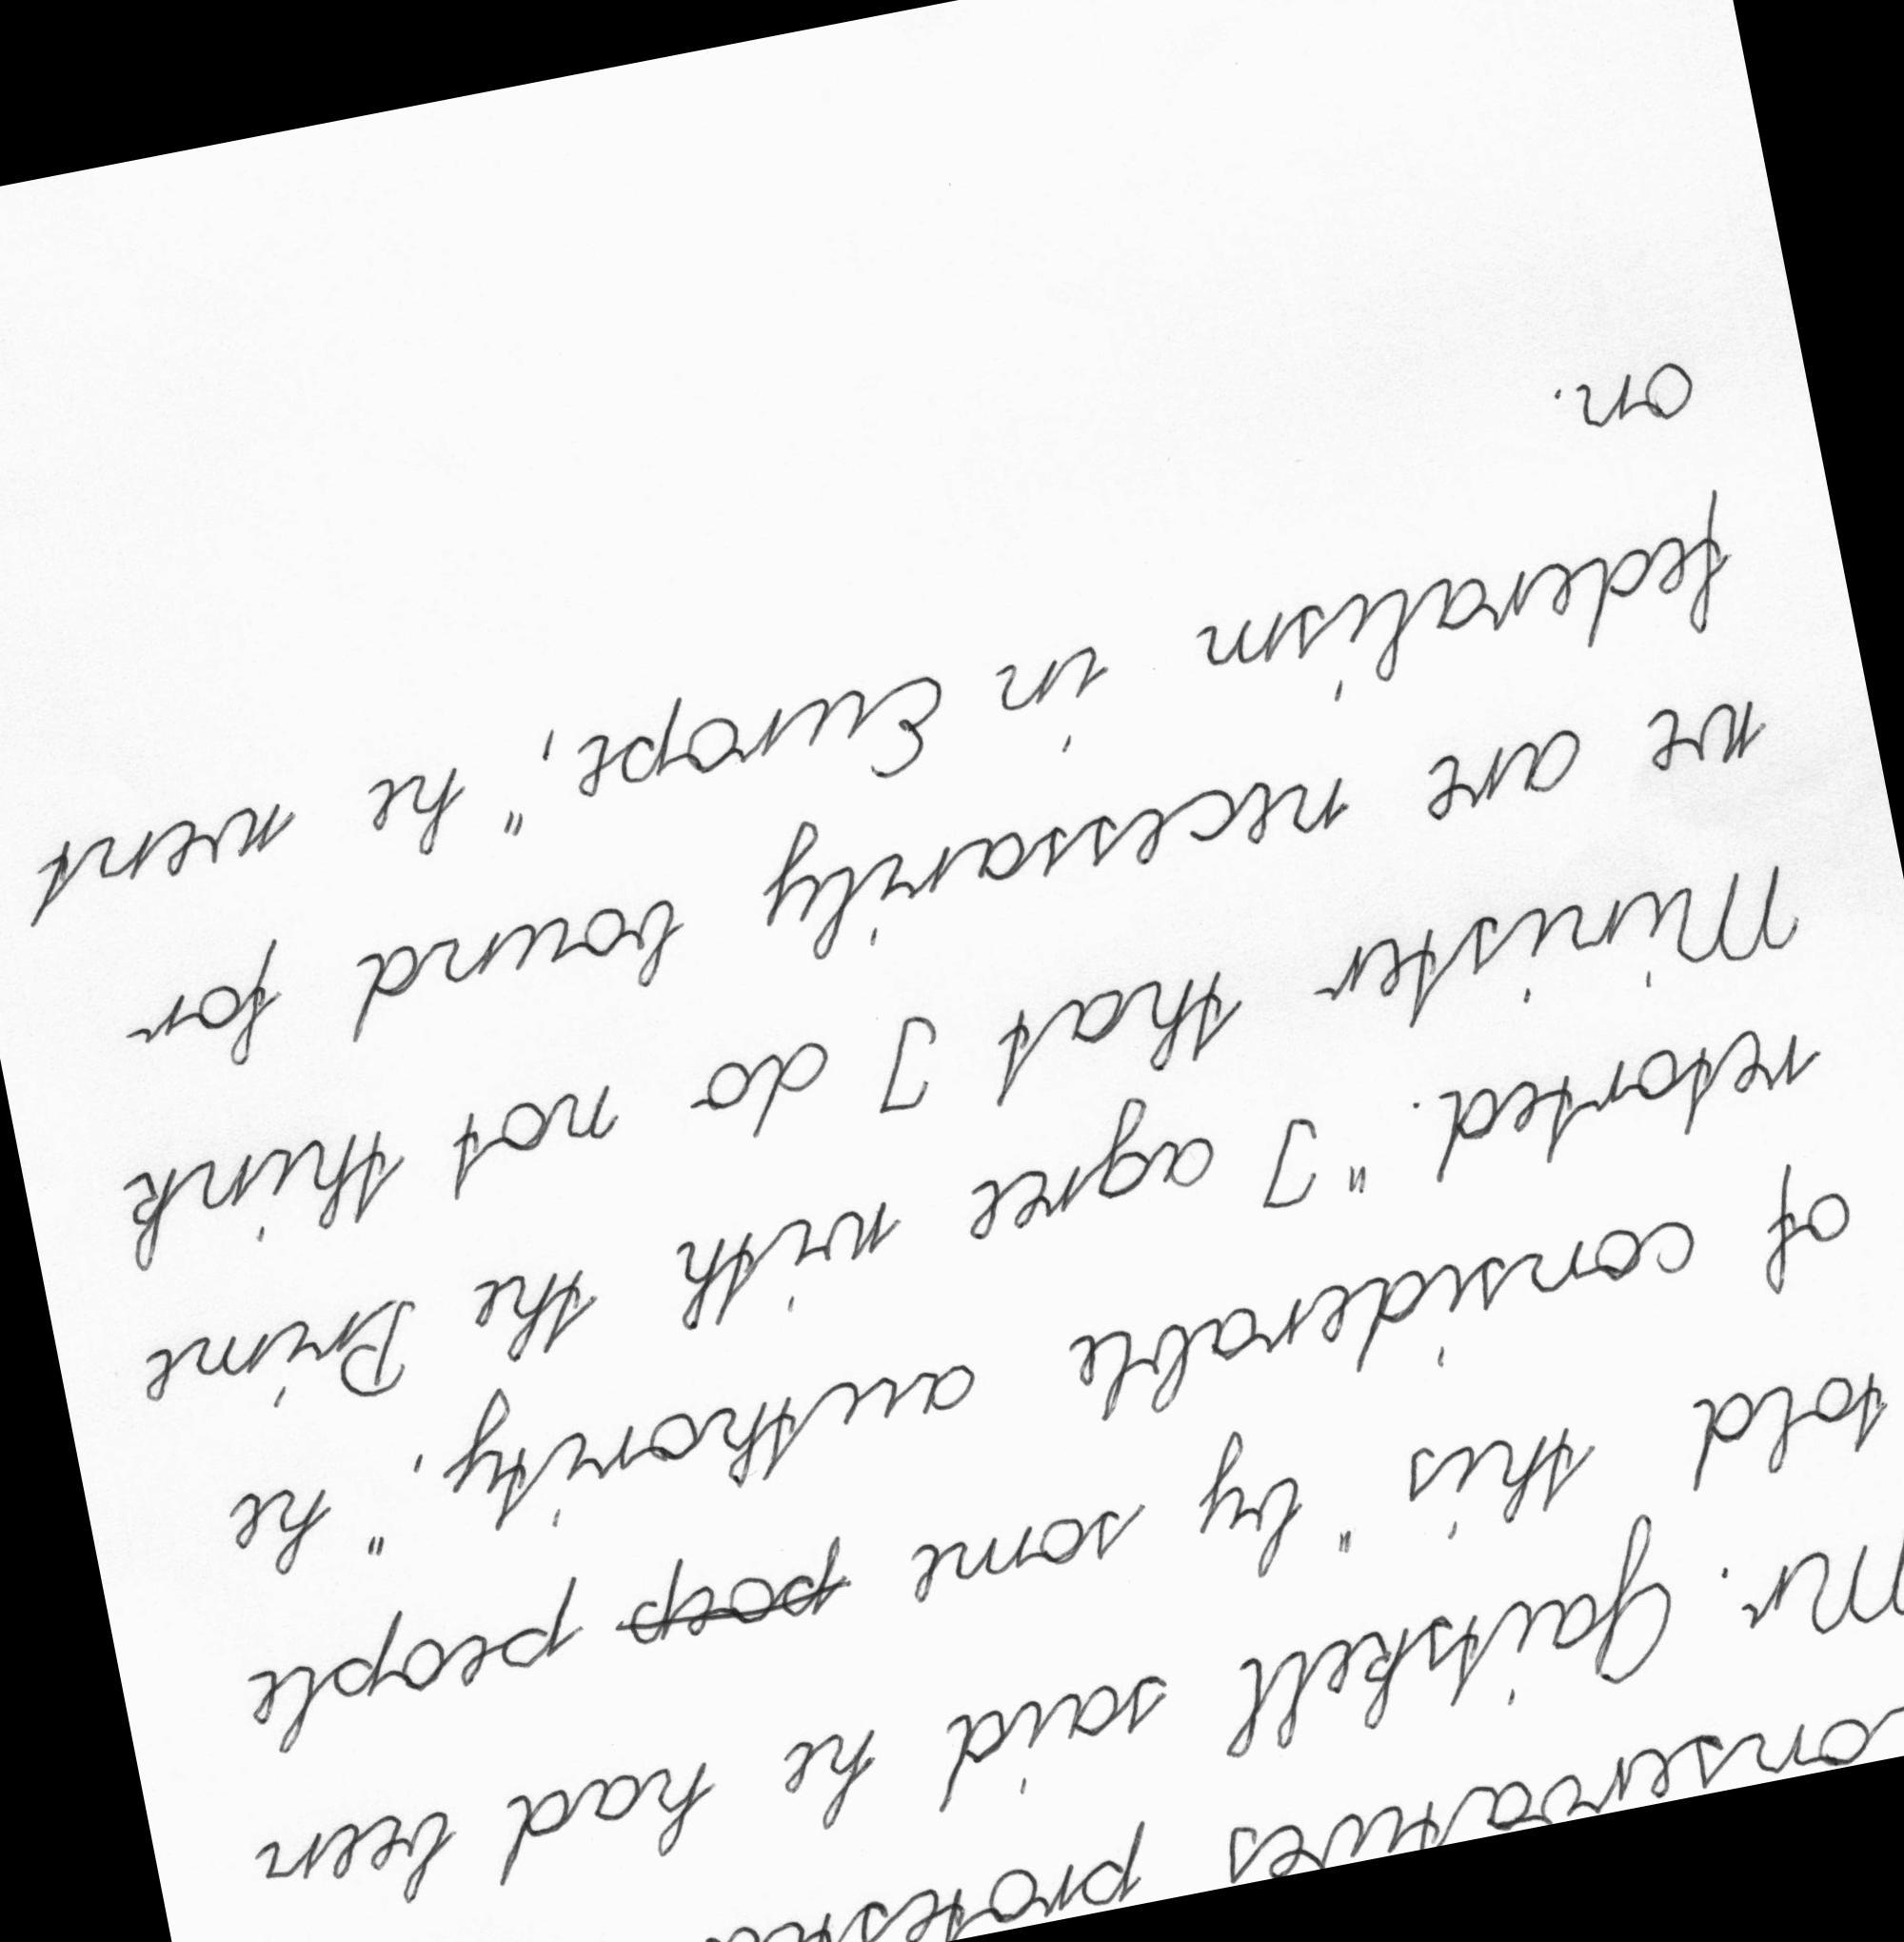 onservatives protes
Mr. Gaitskell said he had been
told this "by some poep people
of considerable authority," he
retorted. "I agree with the Prime
Minister that I do not think
we are necessarily bound for
federalism in Europe," he went
on.